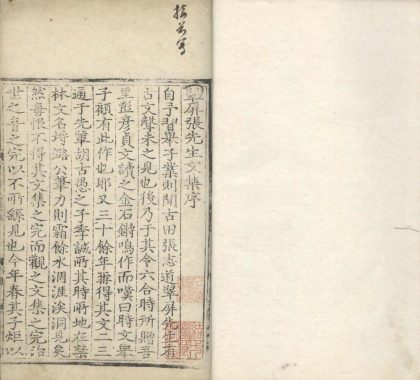 翠屏張先生文集序
自予習舉子業則聞古田張志道翠屏先生有
古文聲未之見也後乃于其令六合時所贈吾
里彭彥貞文讀之金石鏘鳴作而嘆曰時文舉
子顧有此作也耶又三十餘年再得其文二三
通于先輩胡古愚之子季誠所其時所地在禁
林文名埒潞公筆力則霜餘水涸涯涘洞見矣
然每恨不得其文集之完而觀之文集之完治
世之音之完以不所錄見也今年春其子炬以